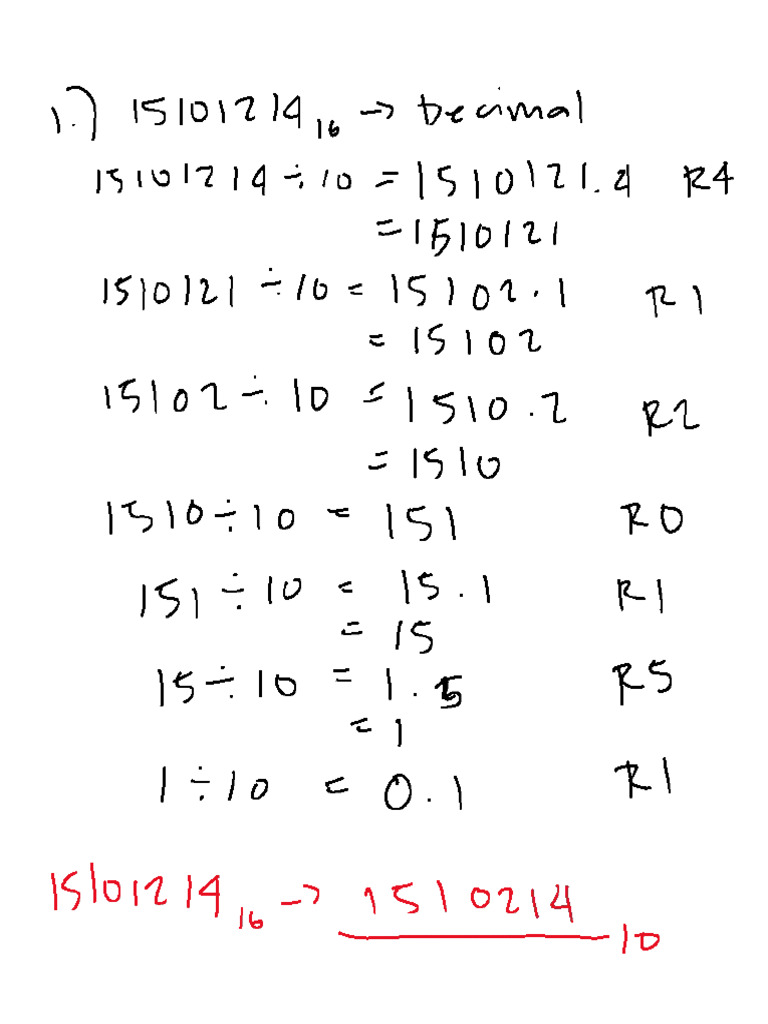 1.) 15101214₁₆ → Decimal
15101214 ÷ 10 = 1510121.4 R4
= 1510121
1510121 ÷ 10 = 15102.1 R1
= 15102
15102 ÷ 10 = 1510.2 R2
= 1510
1510 ÷ 10 = 151 R0
151 ÷ 10 = 15.1 R1
= 15
15 ÷ 10 = 1.5 R5
= 1
1 ÷ 10 = 0.1 R1
15101214₁₆ → 1510214₁₀